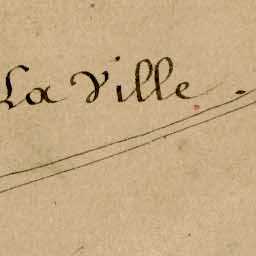 La Ville.